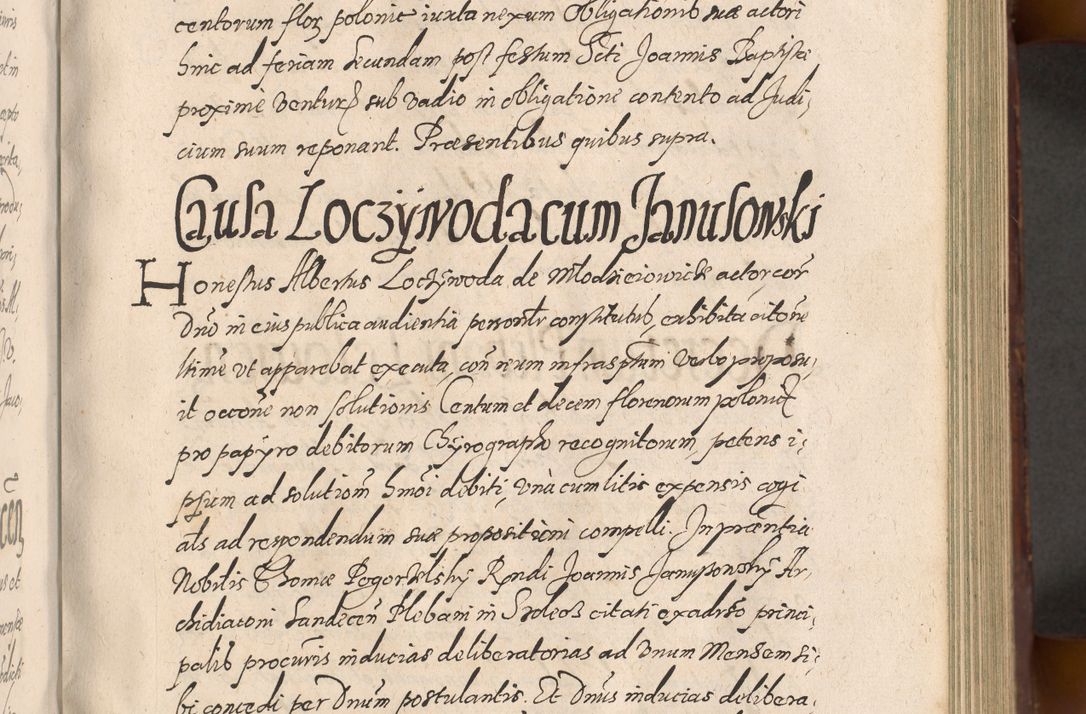 centorum flor polonic iuxta nexum Obligationis suæ actori
hinc ad feriam secundam post festum Scti Joannis Baptistæ
proxime ventur sub vadio in obligatione contento ad Judi,
cium suum reponant. Præsentibus quibus supra.
Causa Loczÿwoda cum Janusowski
Honestus Albertus Loczÿwoda de Młodzieiowicze actor corã
Dnõ in eius publica audientia personlr constitutus, exhibita citõne
ltime vt apparebat executa, con reum infrasptum verbo proposu,
it occõne non solutionis Centum et decem florenorum polonic
pro papÿro debitorum Chÿrographo recognitorum, petens i,
psum ad solutiom hmõi debiti, vnà cum litis expensis cogi
als ad respondendum suæ propositioni compelli. In præntia
Nobilis Thomæ Pogorzelskÿ Rndi Joannis Janusonskÿ Ar,
chidiaconi Sandecen Plebani in citati ex adrso princi,
palis procuris inducias deliberatorias ad vnum Mensem si,
bi concedi per Dnum postulantis. Et Dnus inducias delibera,